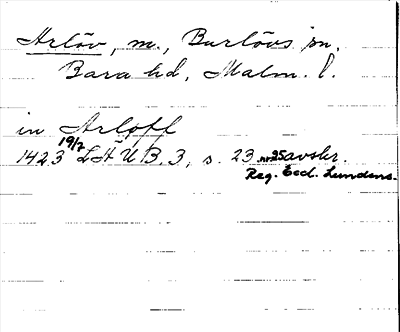 Arlöv, m., Burlövs sn.
Bara hd, Malm. l.
in Arlöff
1423 19/7 LÄUB. 3, s. 23 nr 25 avskr.
Reg. Eccl. Lundens.